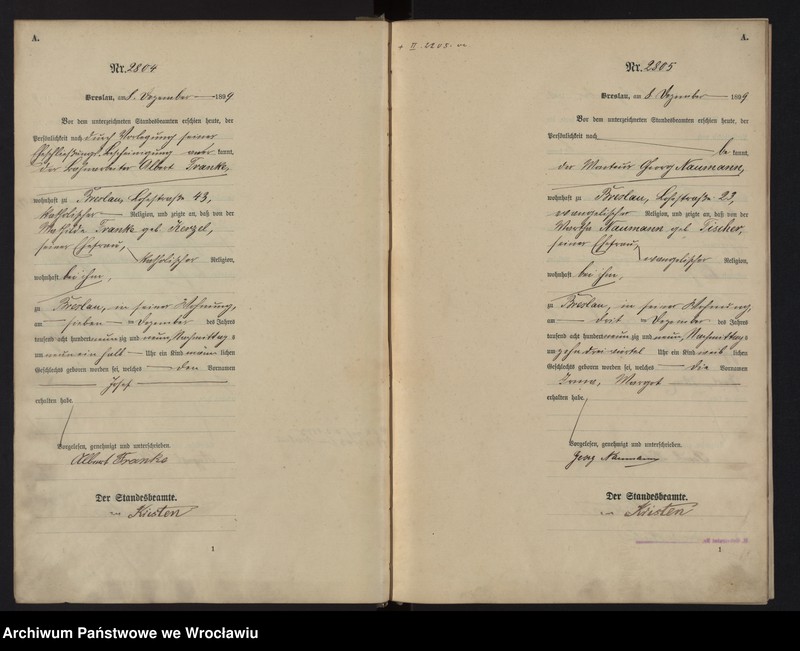 A.
Nr. 2804
Breslau, am 8. Dezember 1899
Vor dem unterzeichneten Standesbeamten erschien heute, der
Persönlichkeit nach durch Vorlegung seiner
Eheschließungs-Bescheinigung aner kannt,
der Bahnarbeiter Albert Franke,
wohnhaft zu Breslau, Lohestraße 43,
katholischer Religion, und zeigte an, daß von der
Mathilde Franke geb.
seiner Ehefrau,
katholischer Religion,
wohnhaft bei ihm,
zu Breslau, in seiner Wohnung,
am sieben ten Dezember des Jahres
tausend acht hundert neunzig und neun, Nachmittag s
um neun ein halb Uhr ein Kind männlichen
Geschlechts geboren worden sei, welches den Vornamen
Josef
erhalten habe.
Vorgelesen, genehmigt und unterschrieben.
Albert Franke
Der Standesbeamte.
Kirsten
1
A.
Nr. 2805
Breslau, am 8. Dezember 1899
Vor dem unterzeichneten Standesbeamten erschien heute, der
Persönlichkeit nach
be kannt,
der Monteur Georg Naumann,
wohnhaft zu Breslau, Lohestraße 22,
evangelischer Religion, und zeigte an, daß von der
Martha Naumann geb. Tischer,
seiner Ehefrau,
evangelischer Religion,
wohnhaft bei ihm,
zu Breslau, in seiner Wohnung,
am drit ten Dezember des Jahres
tausend acht hundert neunzig und neun, Nachmittag s
um zehn drei viertel Uhr ein Kind weib lichen
Geschlechts geboren worden sei, welches die Vornamen
Irma, Margot
erhalten habe.
Vorgelesen, genehmigt und unterschrieben.
Georg Naumann
Der Standesbeamte.
Kirsten
1
Archiwum Państwowe we Wrocławiu